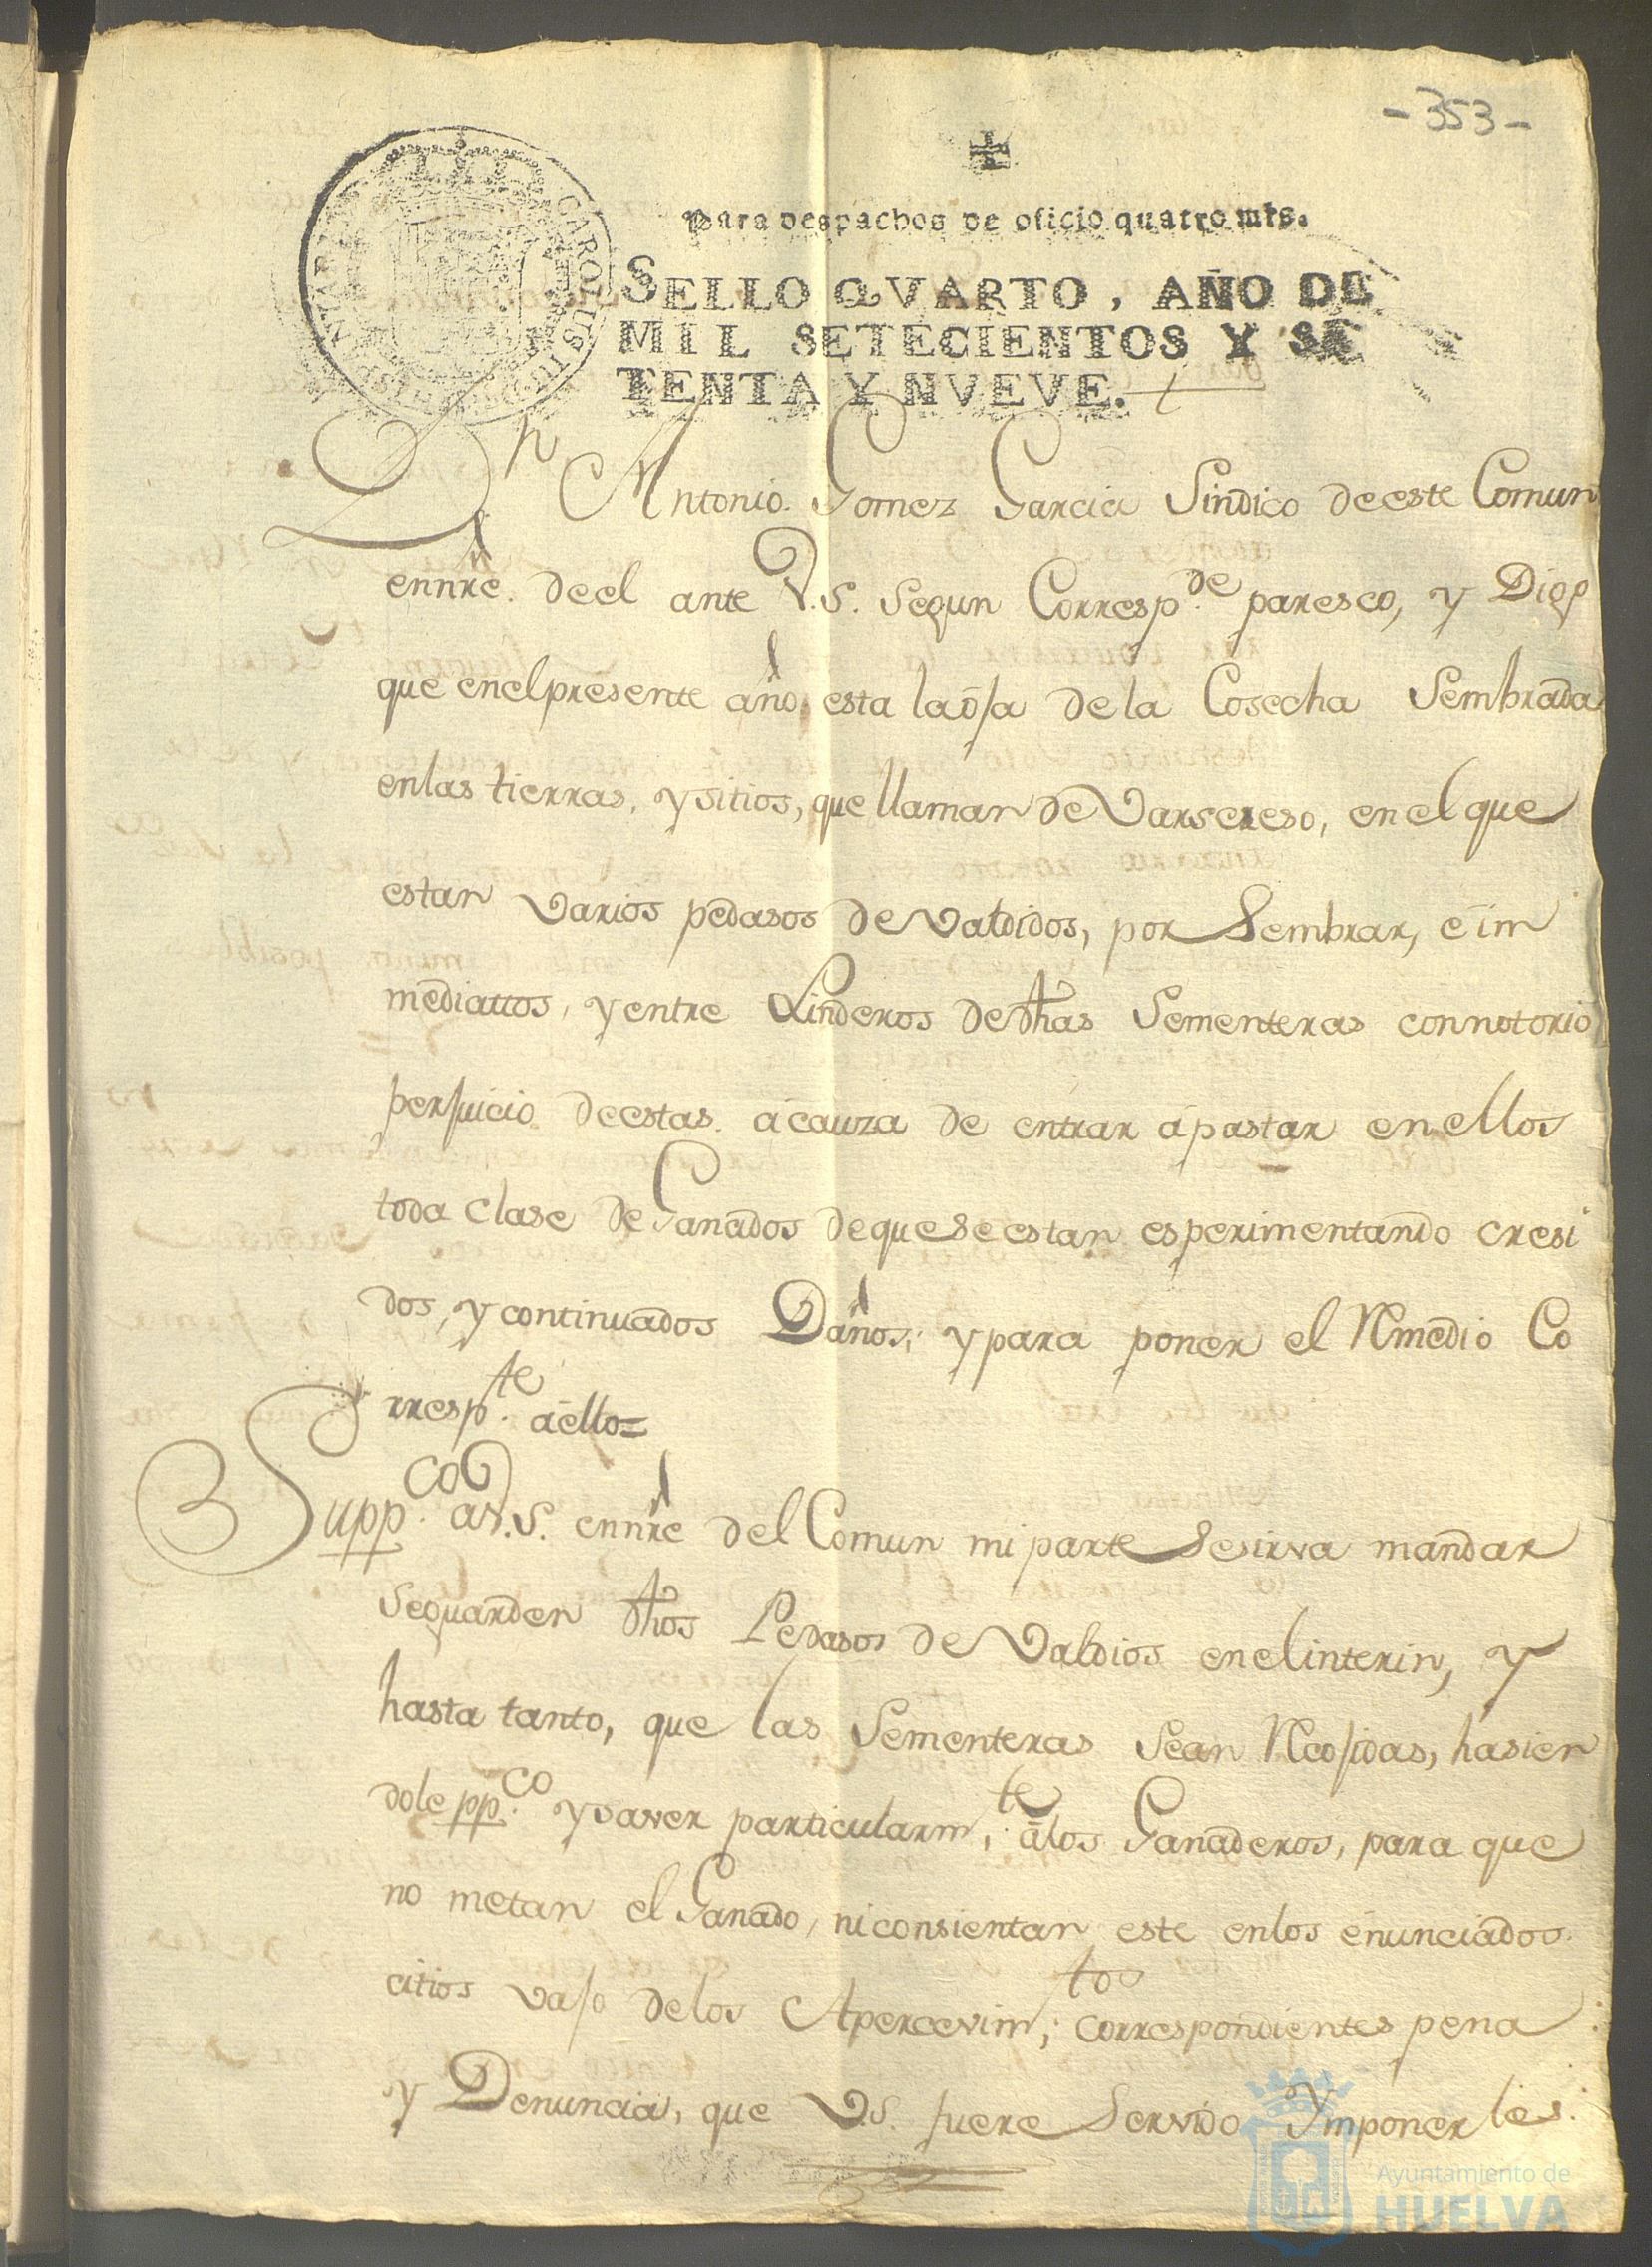 -353-
Para despachos de oficio quatro mrs.
SELLO QVARTO, AÑO DE
MIL SETECIENTOS Y SE
TENTA Y NVEVE.
CAROLUS III
Dn Antonio Gomez Garcia Sindico de este Comun
ennre. de el ante V.S. Segun Corresp.de paresco, y Digo
que en el presente año, esta la oja de la Cosecha Sembrada
en las tierras, y sitios, que llaman de Varsereso, en el que
estan varios pedasos de valdidos, por Sembrar, é im
mediattos, y entre Linderos de dhas Sementeras con notorio
perjuicio de estas. á cauza de entrar á pastar en ellos
toda clase de Ganados de que se estan esperimentando cresi
dos, y continuados Daños; y para poner el Rmedio Co
rresp.te á ello=
Supp.co a V.S. en nre del Comun mi parte Se sirva mandar
se guarden dhos Pedasos de Valdios en el interin, y
hasta tanto, que las Sementeras Sean Rcojidas, hasien
dole pp.co y saver particularm.te á los Ganaderos, para que
no metan el Ganado, ni consientan este en los enunciados
citios vajo de los Apercevim.tos correspondientes pena
y Denuncia, que V.S. fuere Servido Ymponerles.
Ayuntamiento de
HUELVA